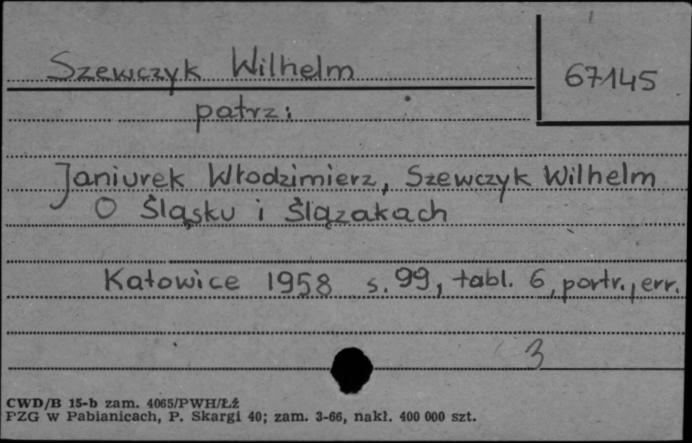 Szewczyk Wilhelm
67145
patrz:
Janiurek Włodzimierz, Szewczyk Wilhelm
O Śląsku i Ślązakach
Katowice 1958 s. 99, tabl. 6, portr., err.
3
CWD/B 15-b zam. 4065/PWH/ŁŻ
PZG w Pabianicach, P. Skargi 40; zam. 3-66, nakł. 400 000 szt.